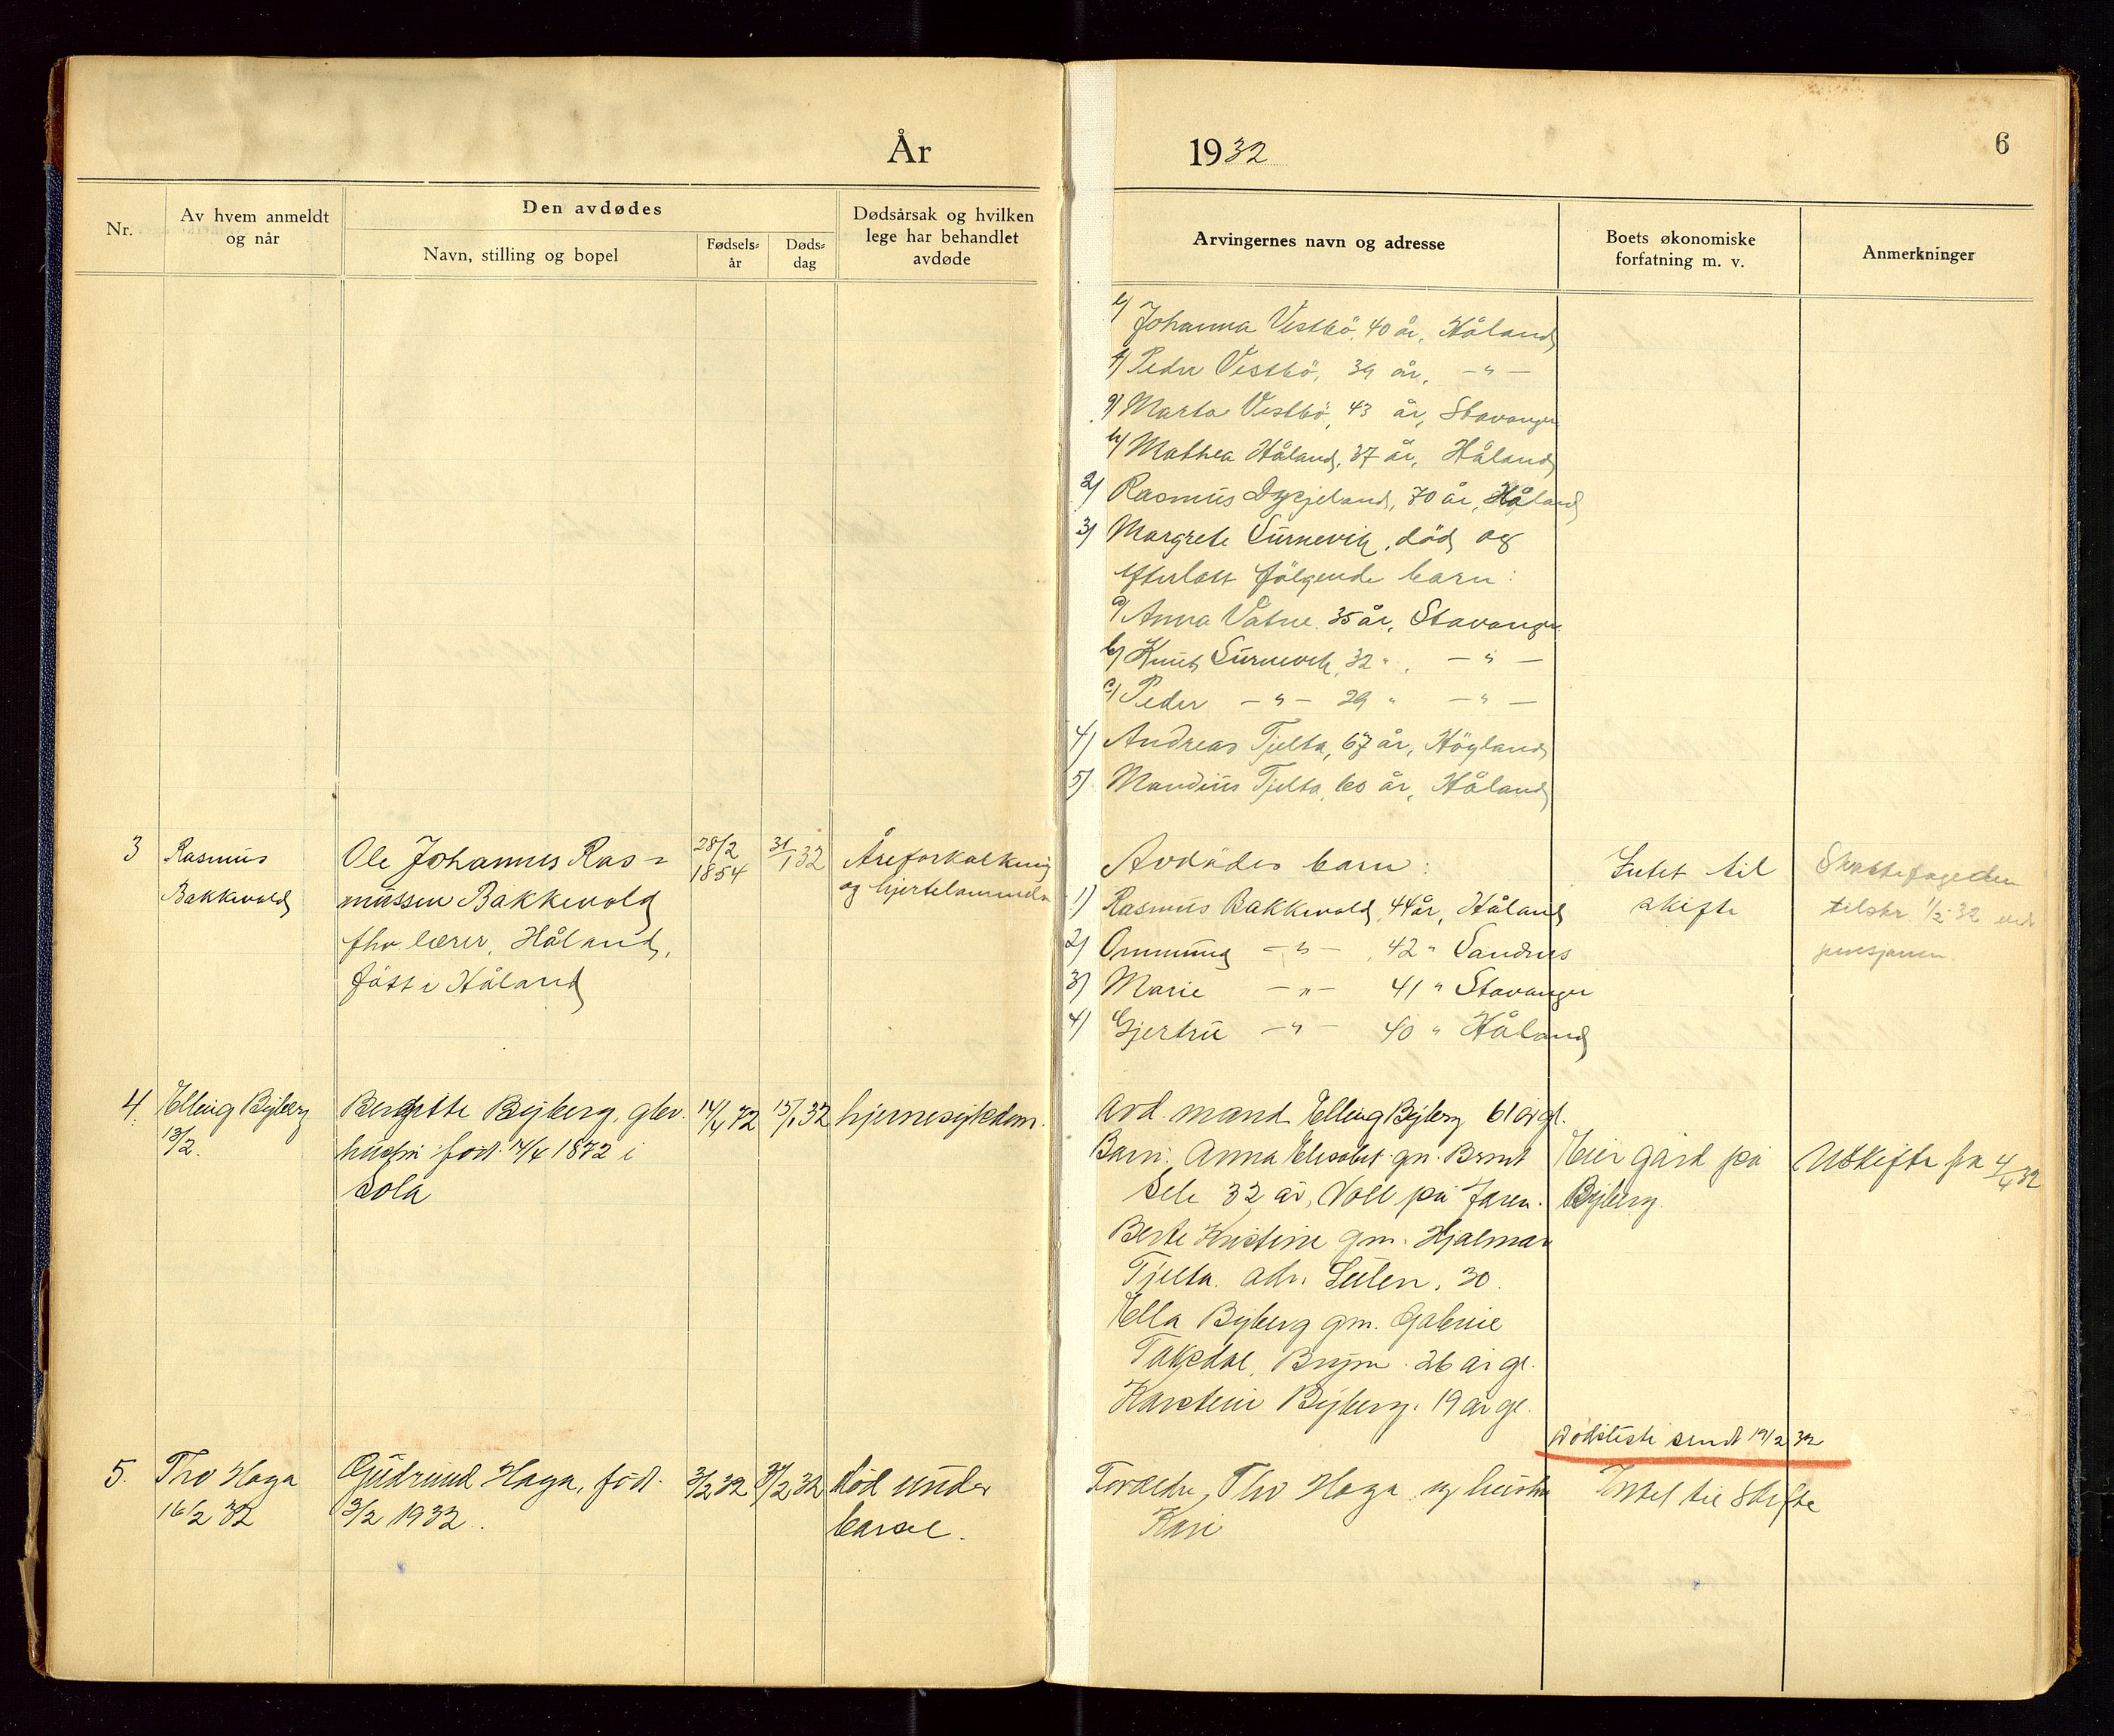 År 1932
6
Nr.
Av hvem anmeldt
og når
Den avdødes
Navn, stilling og bopel
Fødsels-
år
Døds-
dag
Dødsårsak og hvilken
lege har behandlet
avdøde
Arvingernes navn og adresse
Boets økonomiske
forfatning m. v.
Anmerkninger
e) Johanna Vestbö, 40 år, Håland
f) Peder Vestbö, 39 år, - " -
g) Marta Vestbö, 43 år, Stavanger
h) Mathea Håland, 37 år, Håland
2) Rasmus Dysjeland, 70 år, Håland
3) Margrete Surnevik, död og
efterlatt fölgende barn:
a) Anna Vatne, 35 år, Stavanger
b) Knut Surnevik, 32 " - " -
c) Peder - " - 29 " - " -
4) Andreas Tjelta, 67 år, Höyland
5) Mandius Tjelta, 60 år, Håland
3
Rasmus
Bakkevold
Ole Johannes Ras=
mussen Bakkevold
fhv. lærer, Håland,
födt i Håland
28/2
1854
31/1 32
Åreforkalkning
og hjertelammelse
Avdödes barn:
1) Rasmus Bakkevold, 44 år, Håland
2) Ommund - " - 42 " Sandnes
3) Marie - " - 41 " Stavanger
4) Gjertru - " - 40 " Håland
Intet til
skifte
Skattefogeden
tilskr. 1/2 32 ved
pensjonen.
4.
Elling Byberg
13/2.
Bergitte Byberg, gbr.
hustru född. 14/4 1872 i
Sola
14/4 72
15/1 32
hjernesykdom.
Avd. mand Elling Byberg 61 år gl.
Barn: Anna Elisabet gm. Bernt
Sele 32 år, Voll på Jæren.
Berte Kristine gm. Hjalmar
Tjelta. adr. 30.
Ella Byberg gm. Gabriel
26 år gl.
Karstein Byberg. 19 år gl.
Eier gård på
Byberg.
Utskifte fra 4/4 32
Dödsliste sendt 19/2 32
5.
Tho Haga
16/2 32
Gudrund Haga, föd.
3/2 1932.
3/2 32
3/2 32
död under
barsel.
Foreldre, Tho Haga og hustru
Kari
Intet til Skifte